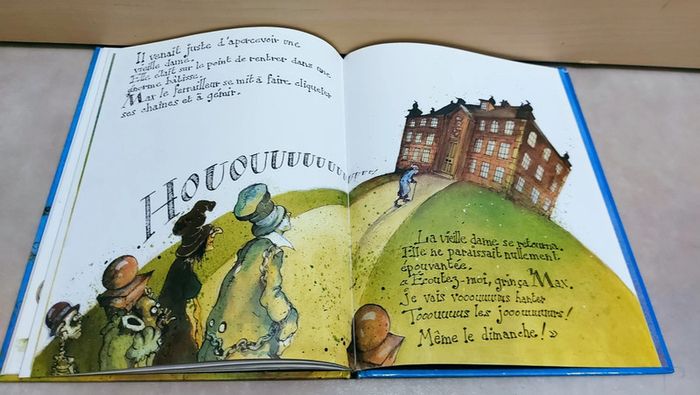 Il venait juste d'apercevoir une
vieille dame.
Elle était sur le point de rentrer dans une
énorme bâtisse.
Max le ferrailleur se mit à faire cliqueter
ses chaînes et à gémir.
La vieille dame se retourna.
Elle ne paraissait nullement
épouvantée.
« Écoutez-moi, grinça Max.
Je vais vooouuuuus hanter
Tooouuuuus les jooouuuuurs!
Même le dimanche! »